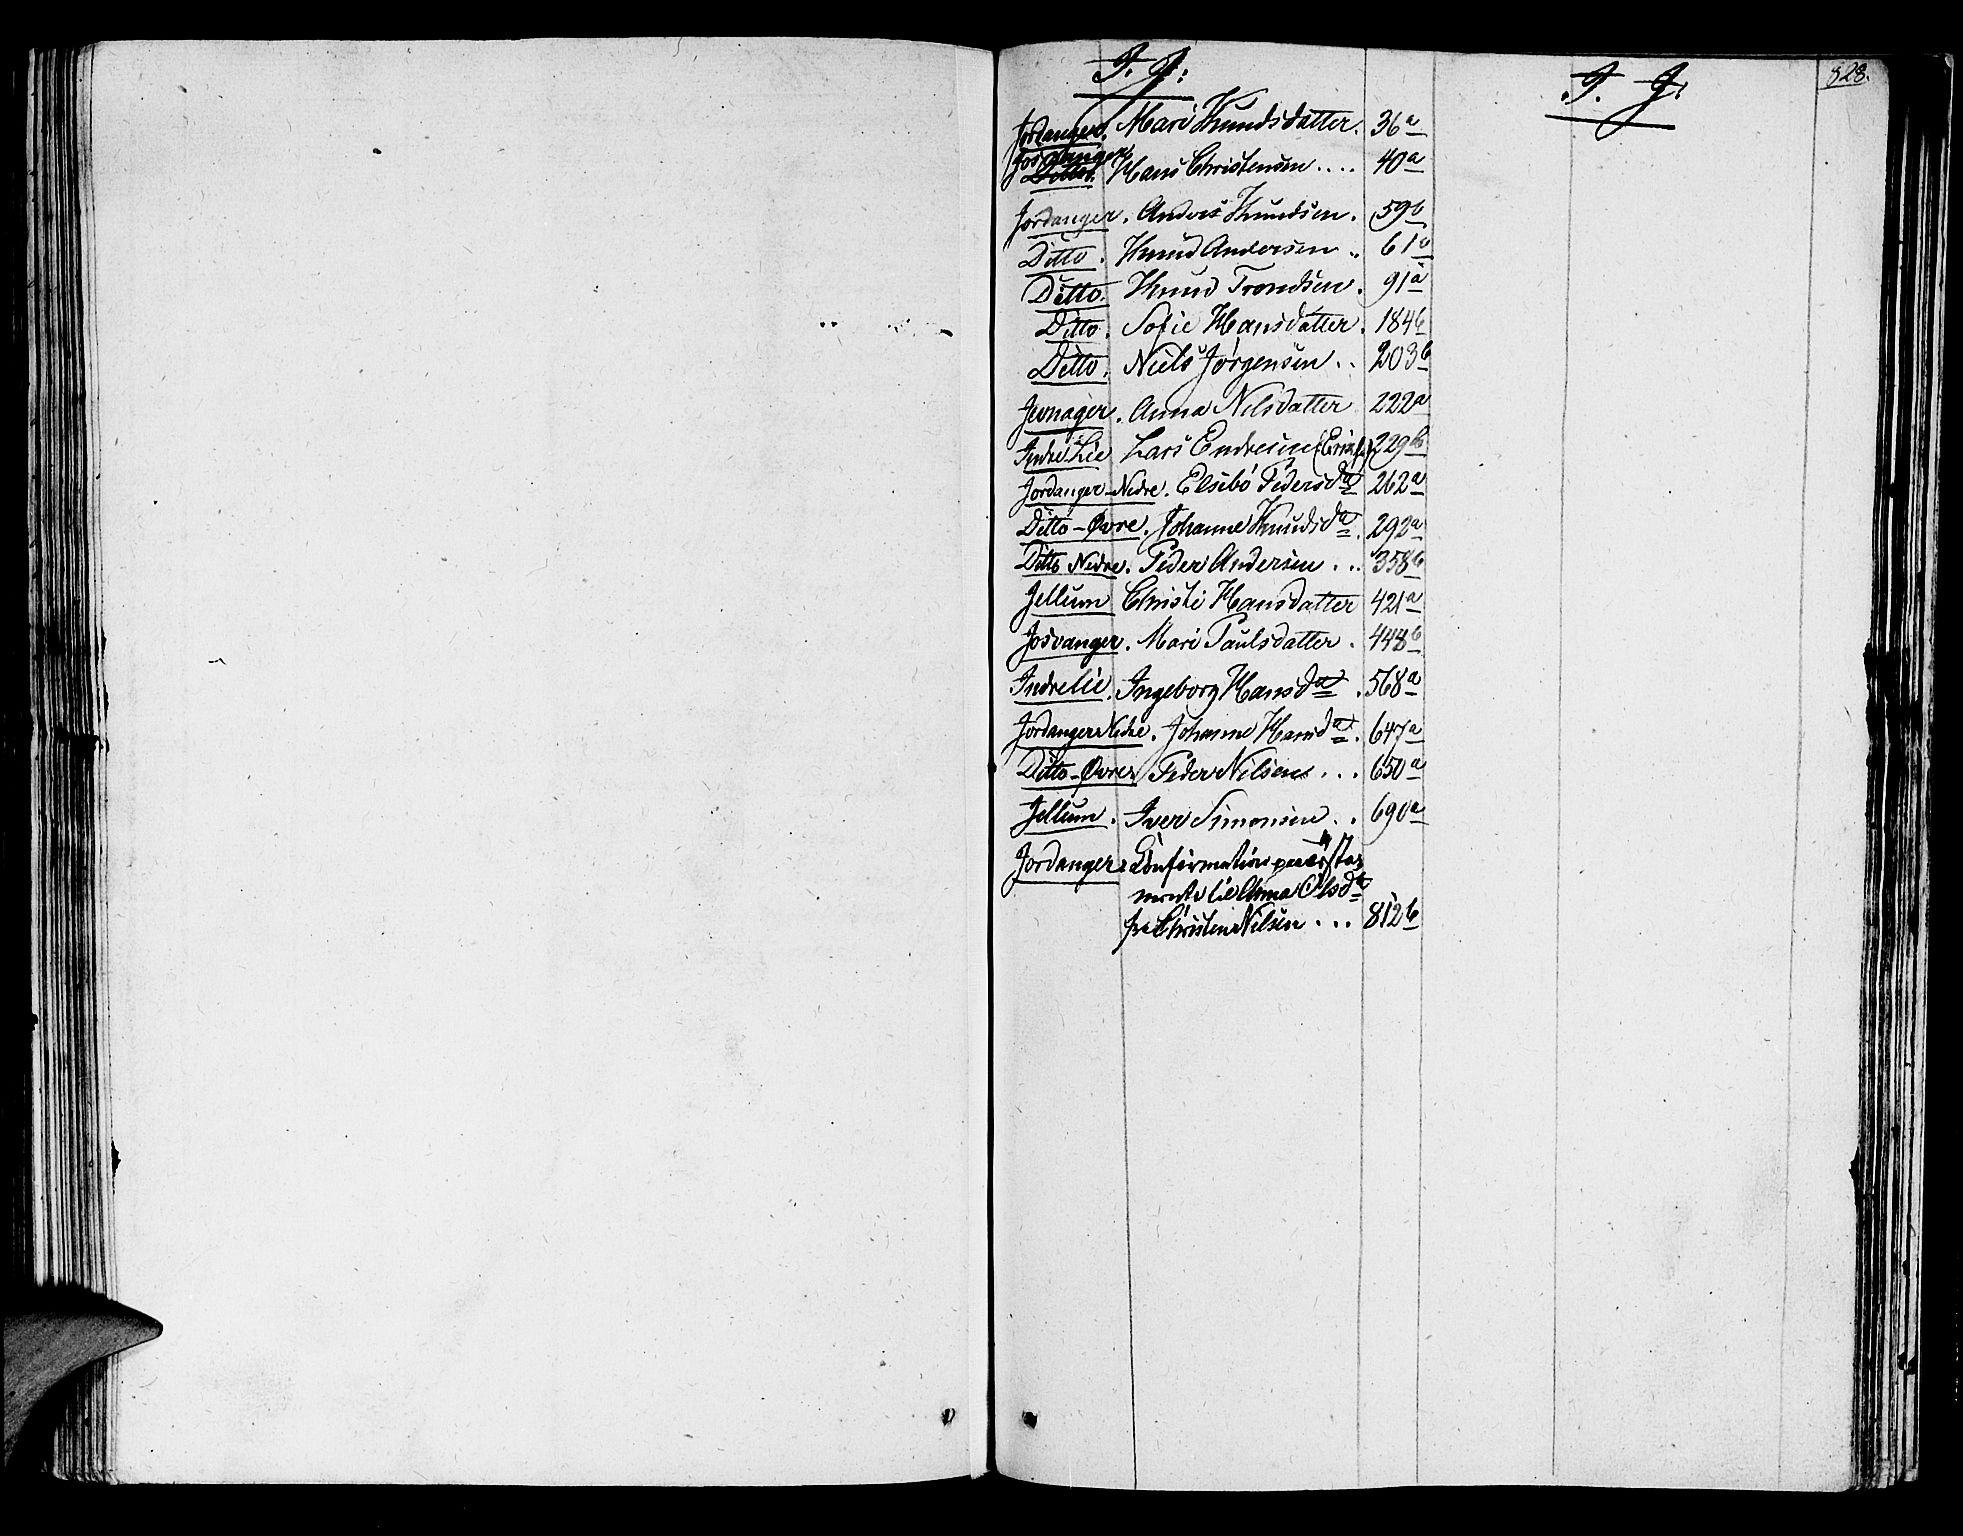 I. J:
I. J.
828.
Jordanger. Mari Knudsdatter. 36a
Josvanger Hans Christensen .... 40a
Ditto.
Jordanger. Anders Knudsen. 59b
Ditto. Knud Andersen .. 61a
Ditto. Knud Trondsen. 91a
Ditto. Sofie Hansdatter. 184b
Ditto. Niels Jørgensen .. 203b
Jevnager. Anna Nilsdatter 222a
Indre Lie Lars Endresen 229b
Jordanger-Nedre. Elsebo Pedersda 262a
Ditto-Øvre. Johanne Knudsda. 292a
Ditto Nedre. Peder Andersen ... 358b
Jellum Christi Hansdatter 421a
Josvanger. Mari Paulsdatter. 448b
Indrelie. Ingeborg Hansda. 568a
Jordanger Nedre. Johanne Hansda. 647a
Ditto-Øvre. Peder Nilsen ... 650a
Jellum. Iver Simonsen .. 690a
Jordanger. Confirmation paa
mente til Anna Olsda
fra Christen Nilsen ... 812b